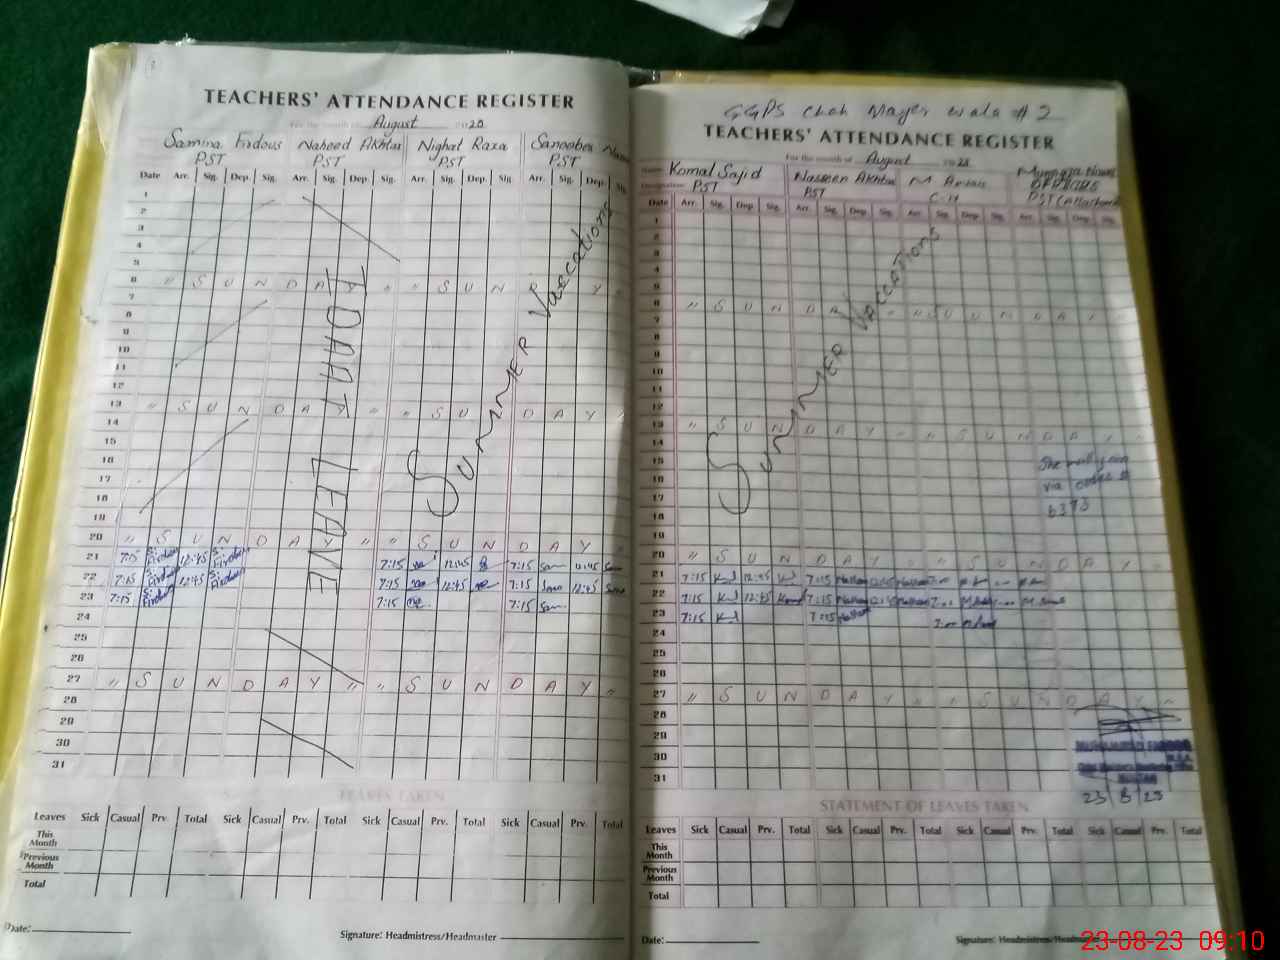 TEACHERS' ATTENDANCE REGISTER
For the month of August 2023
Samina Firdous Naheed Akhtar Nighat Raza Sanoober
PST PST PST PST
Date Arr. Sig. Dep. Sig. Arr. Sig. Dep. Sig. Arr. Sig. Dep. Sig. Arr. Sig. Dep. Sig.
1
2
3
4
5
6 " S U N D A " " S U N D Y "
7
8
9
10
11
12
13 " S U N D A Y " " S U N D A Y "
14
15
16
17
18
19
20 " S U N D A Y " " S U N D A Y "
21 7:15 S. Firdous 12:45 S. Firdous 7:15 12:45 7:15 San 12:45
22 7:15 S. Firdous 12:45 S. Firdous 7:15 12:45 7:15 12:45
23 7:15 S. Firdous 7:15 7:15 San
24
25
26
27 " S U N D A Y " " S U N D A Y "
28
29
30
31
IDAAT LEAVE
SUMMER Vaccations
LEAVES TAKEN
Leaves Sick Casual Prv. Total Sick Casual Prv. Total Sick Casual Prv. Total Sick Casual Prv. Total
This Month
Previous Month
Total
Date:
Signature: Headmistress/Headmaster
GGPS Chah Mayer wala # 2
TEACHERS' ATTENDANCE REGISTER
For the month of August 2023
Name: Komal Sajid Nasreen Akhtar M
Designation: PST PST C-IV PST
Date Arr. Sig. Dep. Sig. Arr. Sig. Dep. Sig. Arr. Sig. Dep. Sig. Arr. Sig. Dep. Sig.
1
2
3
4
5
6 " S U N D A " " S U N D A Y
7
8
9
10
11
12
13 " S U N D A Y " " S U N D A Y "
14
15
16
17
18
19
20 " S U N D A Y " " S U N D A Y
21 7:15 12:45 7:15 12:45
22 7:15 12:45 7:15 12:45
23 7:15 7:15
24
25
26
27 " S U N D A Y " " S U N D A Y "
28
29
30
31
SUMMER Vaccations
She
via order #
6373
23/8/23
STATEMENT OF LEAVES TAKEN
Leaves Sick Casual Prv. Total Sick Casual Prv. Total Sick Casual Prv. Total Sick Casual Prv. Total
This Month
Previous Month
Total
Date:
Signature: Headmistress/
23-08-23 09:10